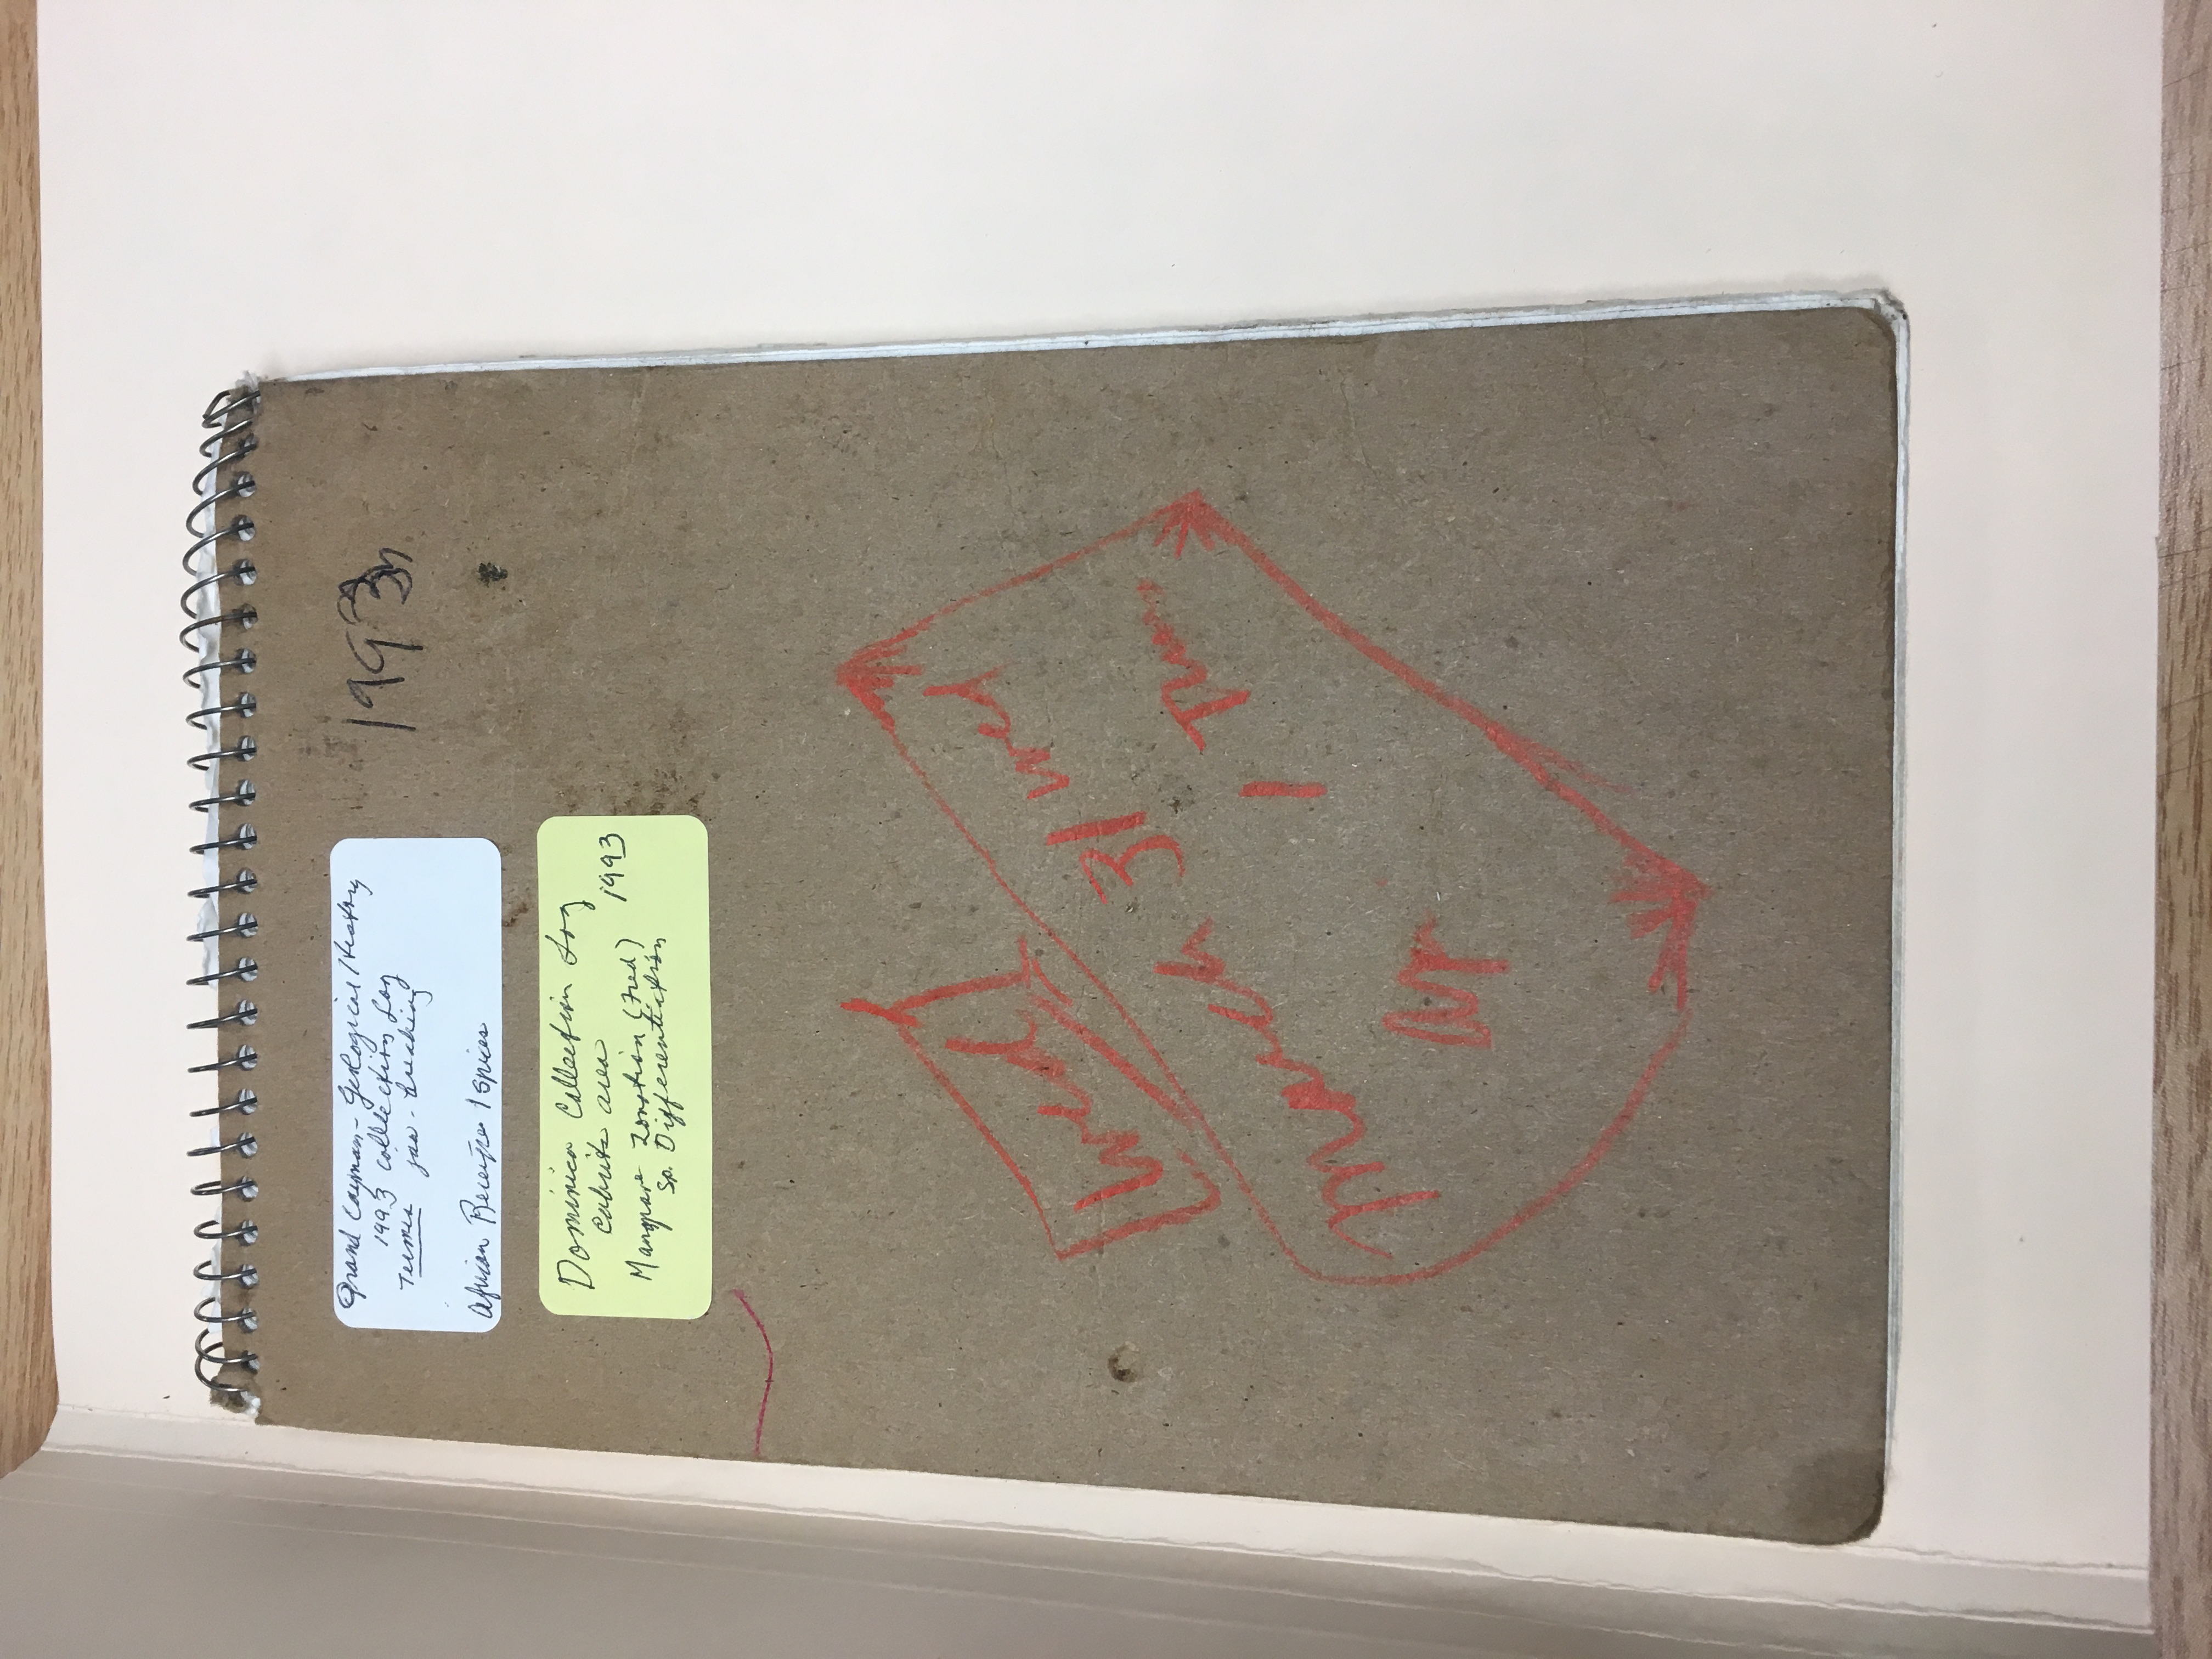 Grand Cayman - Geological History
1993 collection Log
Termes jaw-breaking
African Receipe / Spices
1993
Dominica Collection Log
Cabrits area
1993
Mangrove Zonation (Fred)
Sp. Differentiation
Wed
March 31 Wed
Apr 1 Thurs